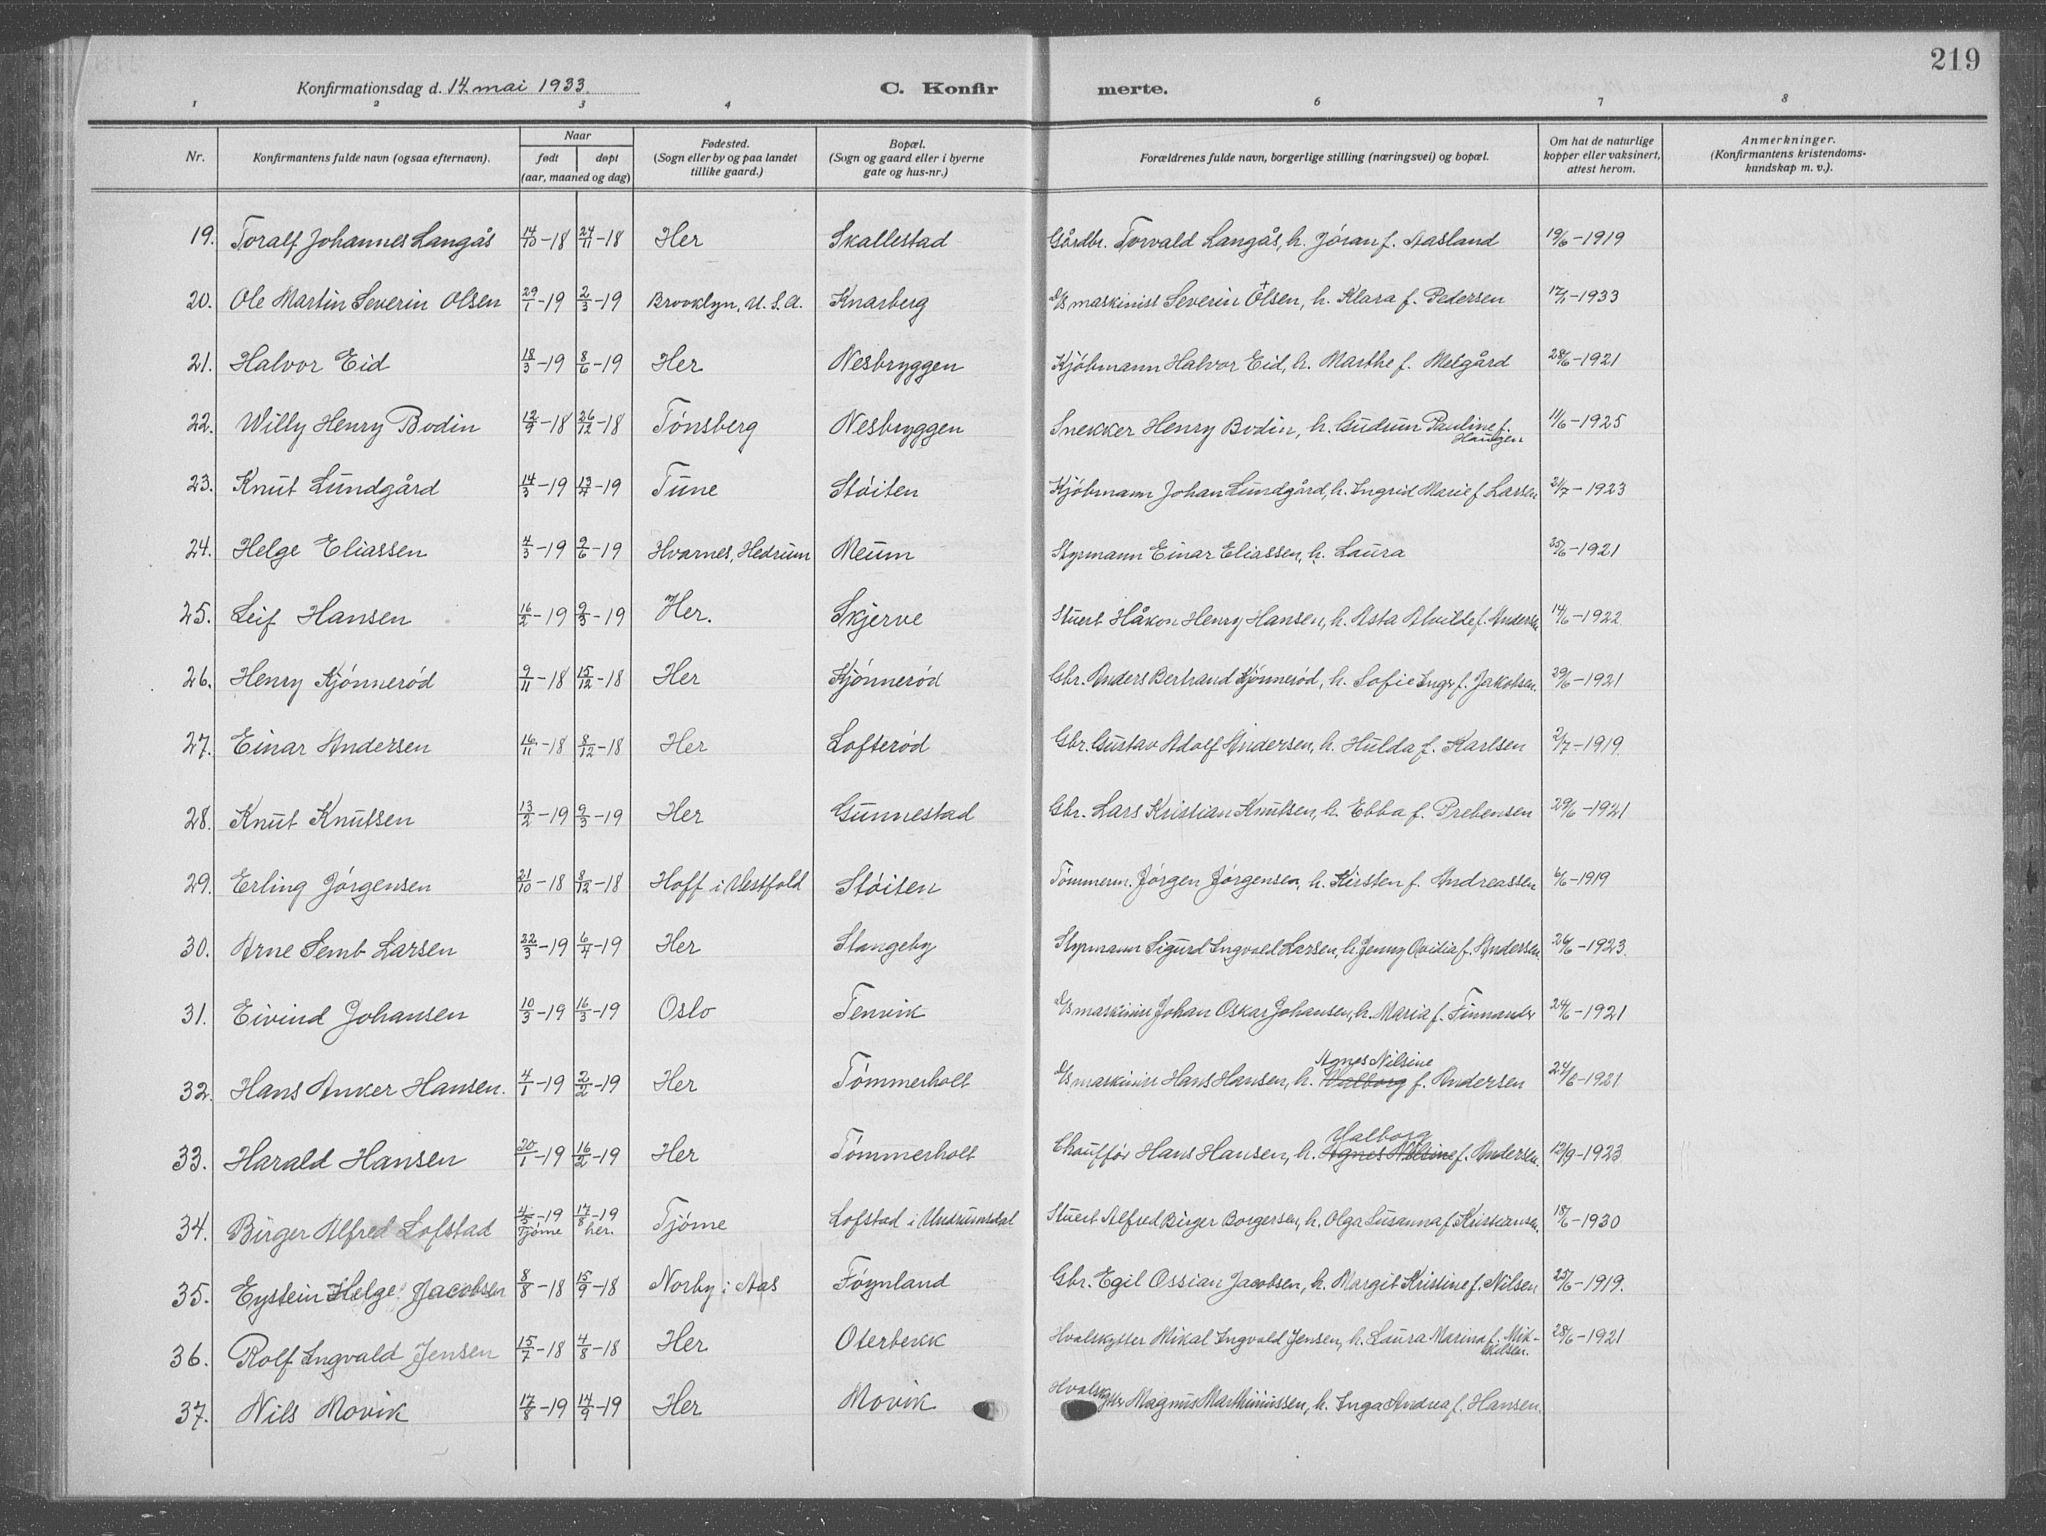 219
Konfirmationsdag d. 14. mai 1933. C. Konfirmerte.
1 2 3 4 6 7 8
Nr. Konfirmantens fulde navn (ogsaa efternavn). Naar født døpt (aar, maaned og dag) Fødested. (Sogn eller by og paa landet tillike gaard.) Bopæl. (Sogn og gaard eller i byerne gate og hus-nr.) Forældrenes fulde navn, borgerlige stilling (næringsvei) og bopæl. Om hat de naturlige kopper eller vaksinert, attest herom. Anmerkninger. (Konfirmantens kristendomskundskap m. v.).
19. Toralf Johannes Langås 14/10-18 24/11-18 Her Skallestad Gårdbr. Torvald Langås, h. Jóran f. Aasland 19/6-1919
20. Ole Martin Severin Olsen 29/1-19 2/3-19 Brooklyn, U.S.A. Knarberg D/S maskinist Severin Olsen, h. Klara f. Pedersen 17/1-1933
21. Halvor Eid 18/3-19 8/6-19 Her Nesbryggen Kjöbmann Halvor Eid, h. Marthe f. Melgård 28/6-1921
22. Willy Henry Bodin 12/9-18 26/12-18 Tønsberg Nesbryggen Snekker Henry Bodin, h. Gudrun Pauline f. Haugen 11/6-1925
23. Knut Lundgård 14/3-19 13/4-19 Tune Støiten Kjöbmann Johan Lundgård, h. Ingrid Marie f. Larsen 21/7-1923
24. Helge Eliassen 4/3-19 9/6-19 Hvarnes, Hedrum Meum Styrmann Einar Eliassen, h. Laura 25/6-1921
25. Leif Hansen 16/2-19 9/3-19 Her. Skjerve Stuert Håkon Henry Hansen, h. Asta Alvilde f. Andersen 14/6-1922
26. Henry Kjønnerød 9/11-18 15/12-18 Her Kjønnerød Gbr. Anders Bertrand Kjønnerød, h. Sofie Inga f. Jakobsen. 29/6-1921
27. Einar Andersen 16/11-18 8/12-18 Her Lofterød Gbr. Gustav Adolf Andersen, h. Hulda f. Karlsen 2/7-1919
28. Knut Knutsen 13/2-19 9/3-19 Her Gunnestad Gbr. Lars Kristian Knutsen, h. Ebba f. Prebensen 29/6-1921
29. Erling Jórgensen 21/10-18 8/12-18 Hoff i Vestfold Støiten Tømmerm. Jørgen Jørgensen, h. Kirsten f. Andreassen 6/6-1919
30. Arne Semb-Larsen 22/3-19 6/4-19 Her Stangeby Styrmann Sigurd Ingvald Larsen, h. Jenny Ovidia f. Andersen. 26/6-1923.
31. Eivind Johansen 10/3-19 16/3-19 Oslo Tenvik D/S maskinist Johan Oskar Johansen, h. Maria f. Finnander 24/6-1921
32. Hans Anker Hansen. 4/1-19 2/2-19 Her Tømmerholt D/S maskinist Hans Hansen, h. Valborg Agnes Nilsine f. Andersen 24/6-1921
33. Harald Hansen 20/1-19 16/2-19 Her Tømmerholt Chauffør Hans Hansen, h. Agnes Nilsine Valborg f. Andersen. 12/9-1923
34. Birger Alfred Lofstad 4/5-19 Tjøme 17/8-19 her. Tjøme Lofstad i Undrumsdal Stuert Alfred Birger Borgersen, h. Olga Susanna f. Kristiansen. 18/6-1930
35. Eystein Helge Jacobsen 8/8-18 15/9-18 Norby i Aas Føynland Gbr. Egil Ossian Jacobsen, h. Margit Kristine f. Nilsen 25/6-1919.
36. Rolf Ingvald Jensen 15/7-18 4/8-18 Her Oterbekk Hvalskytter Mikal Ingvald Jensen, h. Laura Marina f. Mikkelsen. 28/6-1921
37. Nils Movik 17/8-19 14/9-19 Her Movik Hvalskytter Magnus Marthiniussen, h. Inga Andrea f. Hansen.